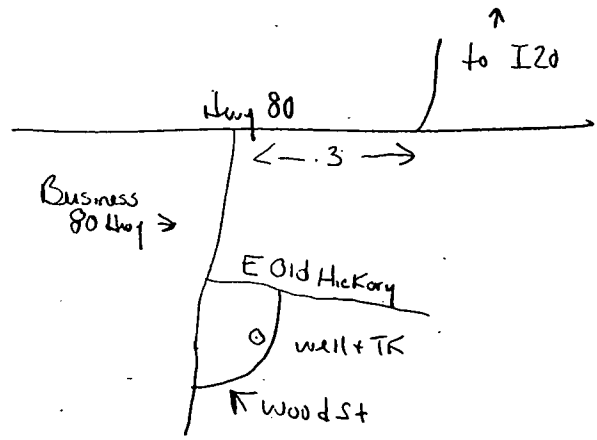 to I20
Hwy 80
<- .3 ->
Business
80 Hwy →
E Old Hickory
well + TK
Wood St